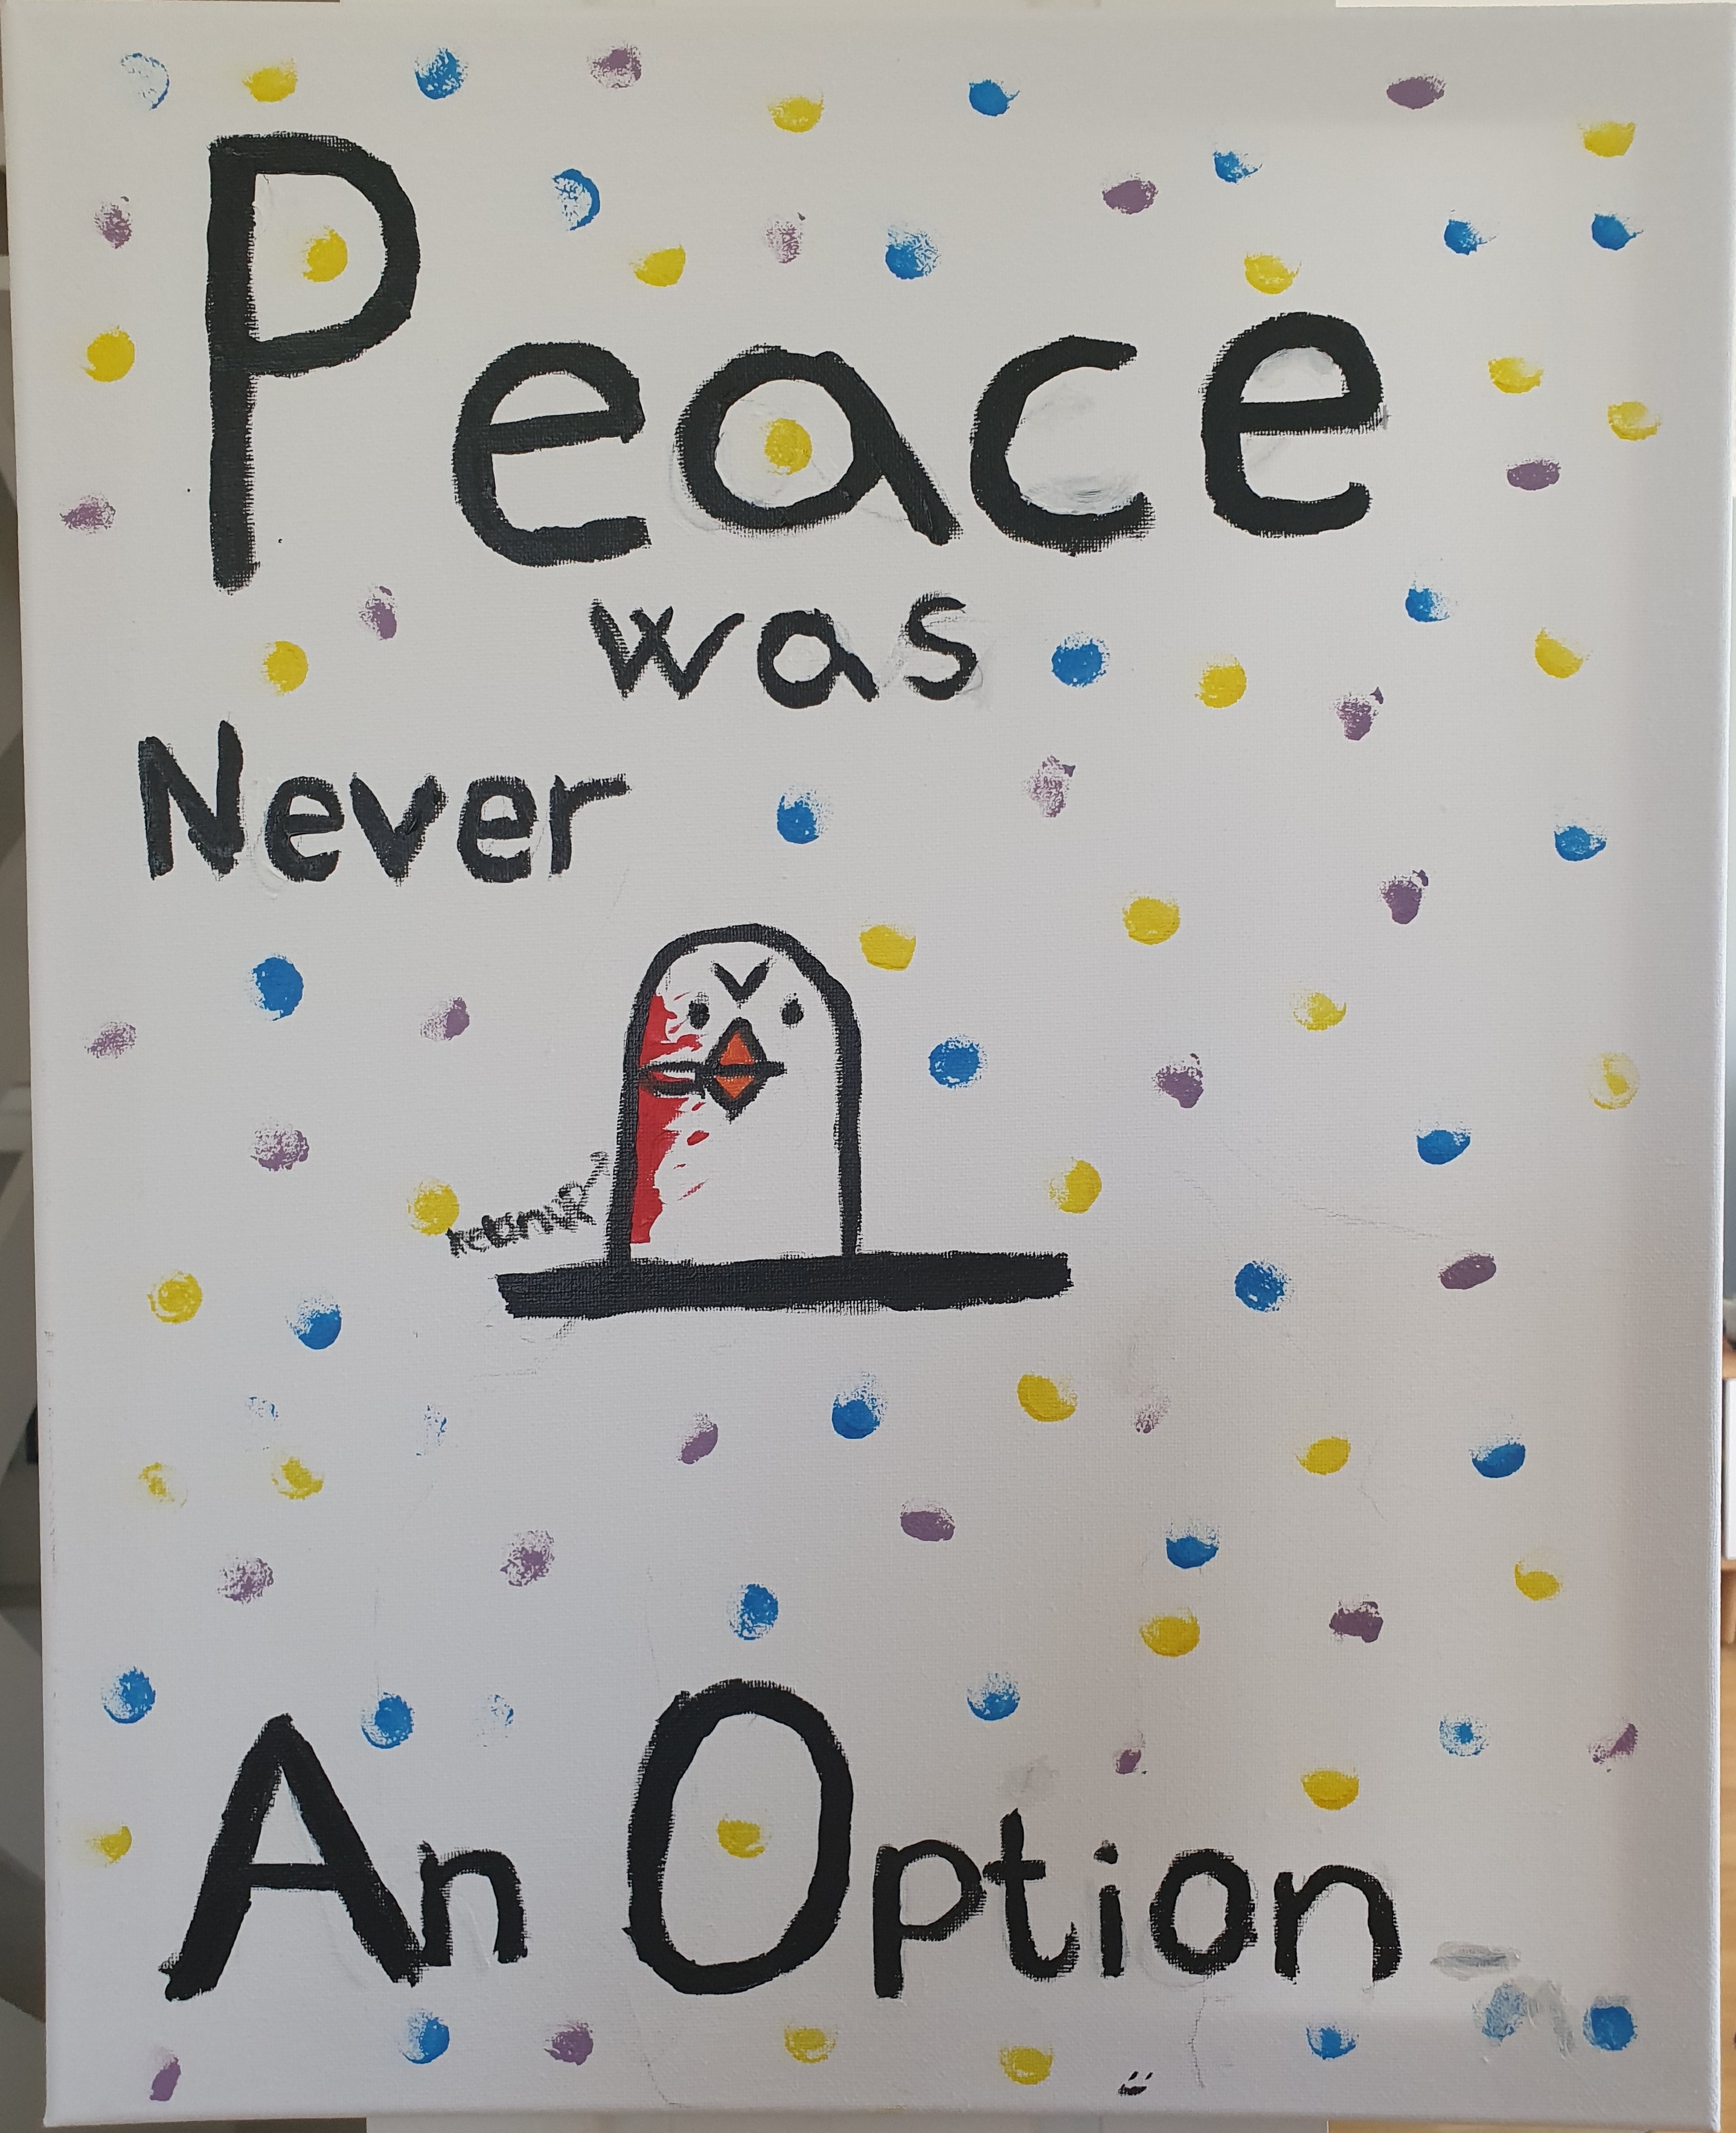 Peace
was
Never
An Option